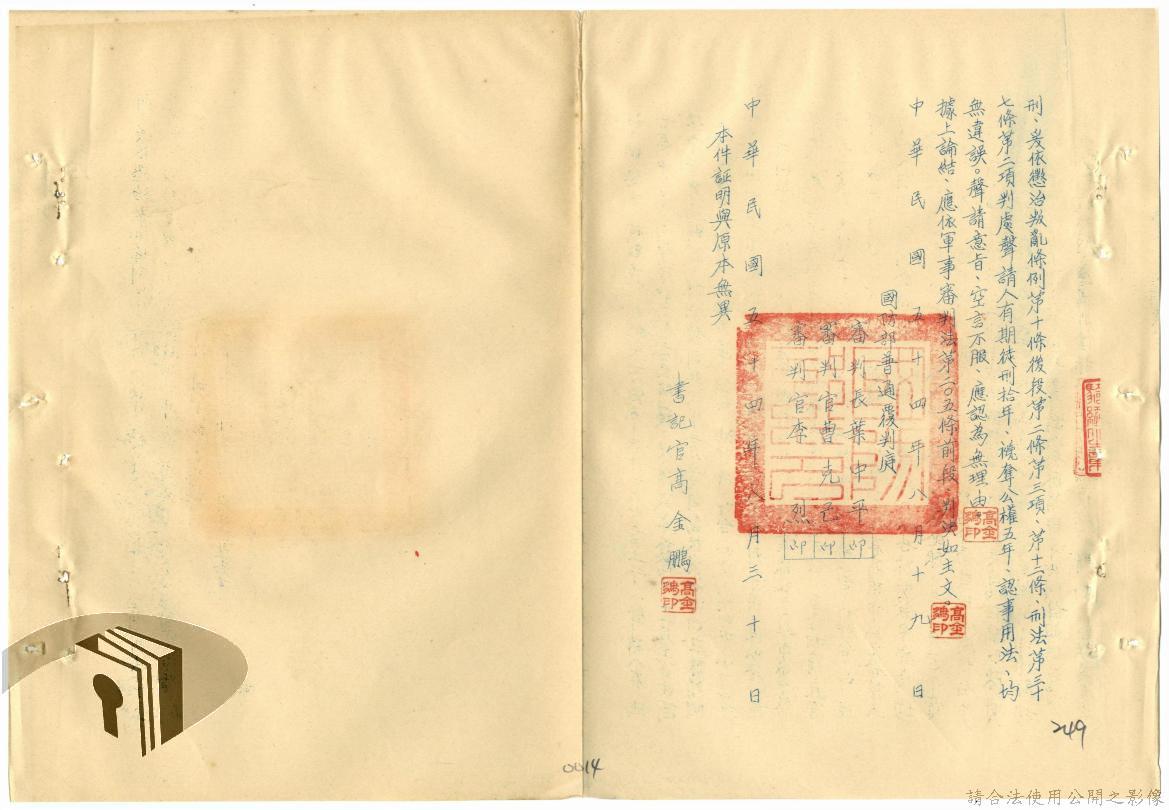 刑、爰依懲治叛亂條例第十條後段第二條第三項、第十二條、刑法第三十
七條第二項判處聲請人有期徒刑拾年、褫奪公權五年、認事用法、均
無違誤。聲請意旨、空言不服、應認為無理由
據上論結、應依軍事審判法第二〇五條前段、判決如主文。
中華民國五十四年八月十九日
國防部普通覆判庭
審判長葉中平 印
審判官曹克己 印
審判官李烈 印
中華民國五十四年八月三十日
本件証明與原本無異
書記官高金鵬
高金鵬印
高金鵬印
高金鵬印
249
0014
請合法使用公開之影像